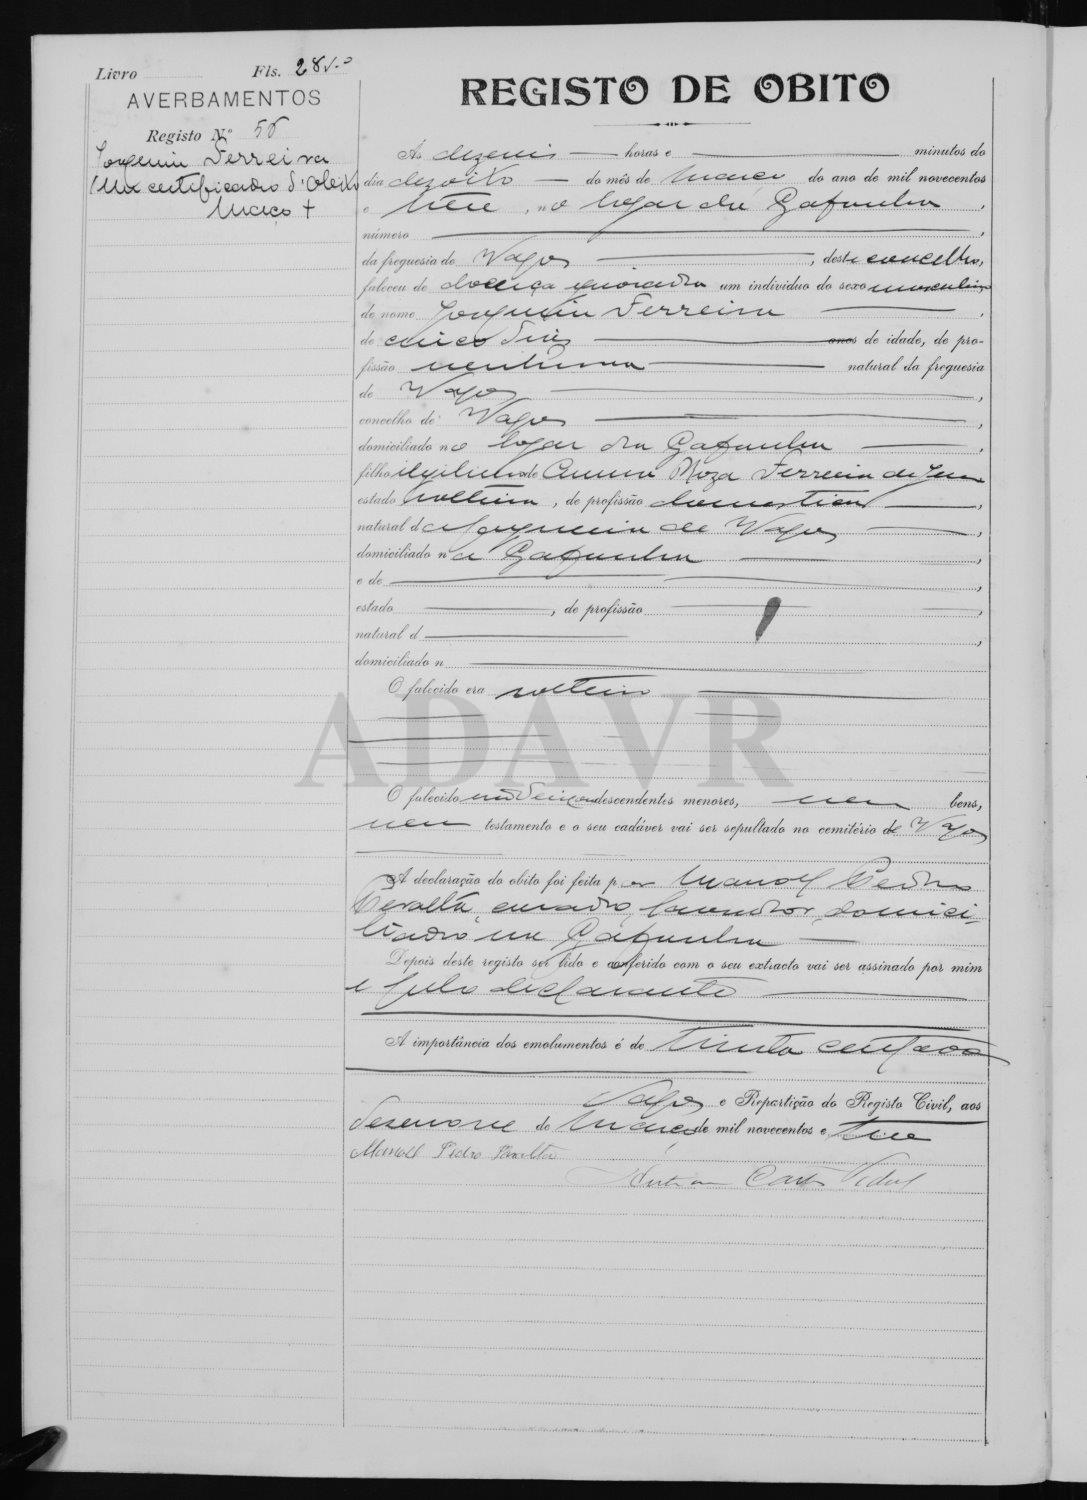 Livro Fls. 28v.º
AVERBAMENTOS
Registo N.º 56
Joaquim Ferreira
Um certificado d'Obito
Março +
REGISTO DE OBITO
Ás dezeseis horas e minutos do
dia dezoito do mês de Março do ano de mil novecentos
e treze, no logar da Gafanha,
número
da freguesia de Vagos, deste concelho,
faleceu de doença ignorada um individuo do sexo masculino
de nome Joaquim Ferreira,
de cinco dias anos de idade, de pro-
fissão nenhuma natural da freguesia
de Vagos,
concelho de Vagos,
domiciliado no logar da Gafanha,
filho ilegitimo de Roza Ferreira de Jesus
estado solteira, de profissão domestica,
natural da freguesia de Vagos,
domiciliado na Gafanha,
e de,
estado, de profissão,
natural d,
domiciliado n
O falecido era solteiro
ADAVR
O falecido não deixou descendentes menores, nem bens,
nem testamento e o seu cadáver vai ser sepultado no cemitério de Vagos
A declaração do obito foi feita por Manoel Pedro
casado, lavrador, domici-
liado na Gafanha
Depois deste registo ser lido e conferido com o seu extracto vai ser assinado por mim
e pelo declarante
A importância dos emolumentos é de trinta centavos
Vagos e Repartição do Registo Civil, aos
dezenove de Março de mil novecentos e treze
Manoel Pedro
Vidal